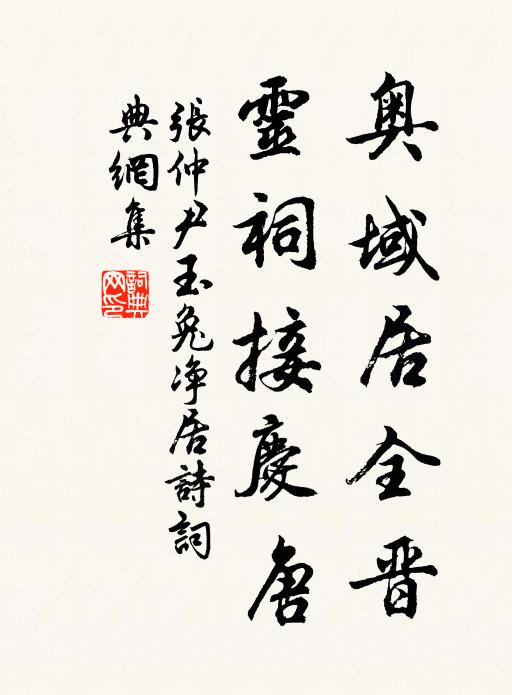 奥域居全晋
靈祠接慶唐
張仲尹玉兔净居詩詞
典網集
詞典
网印